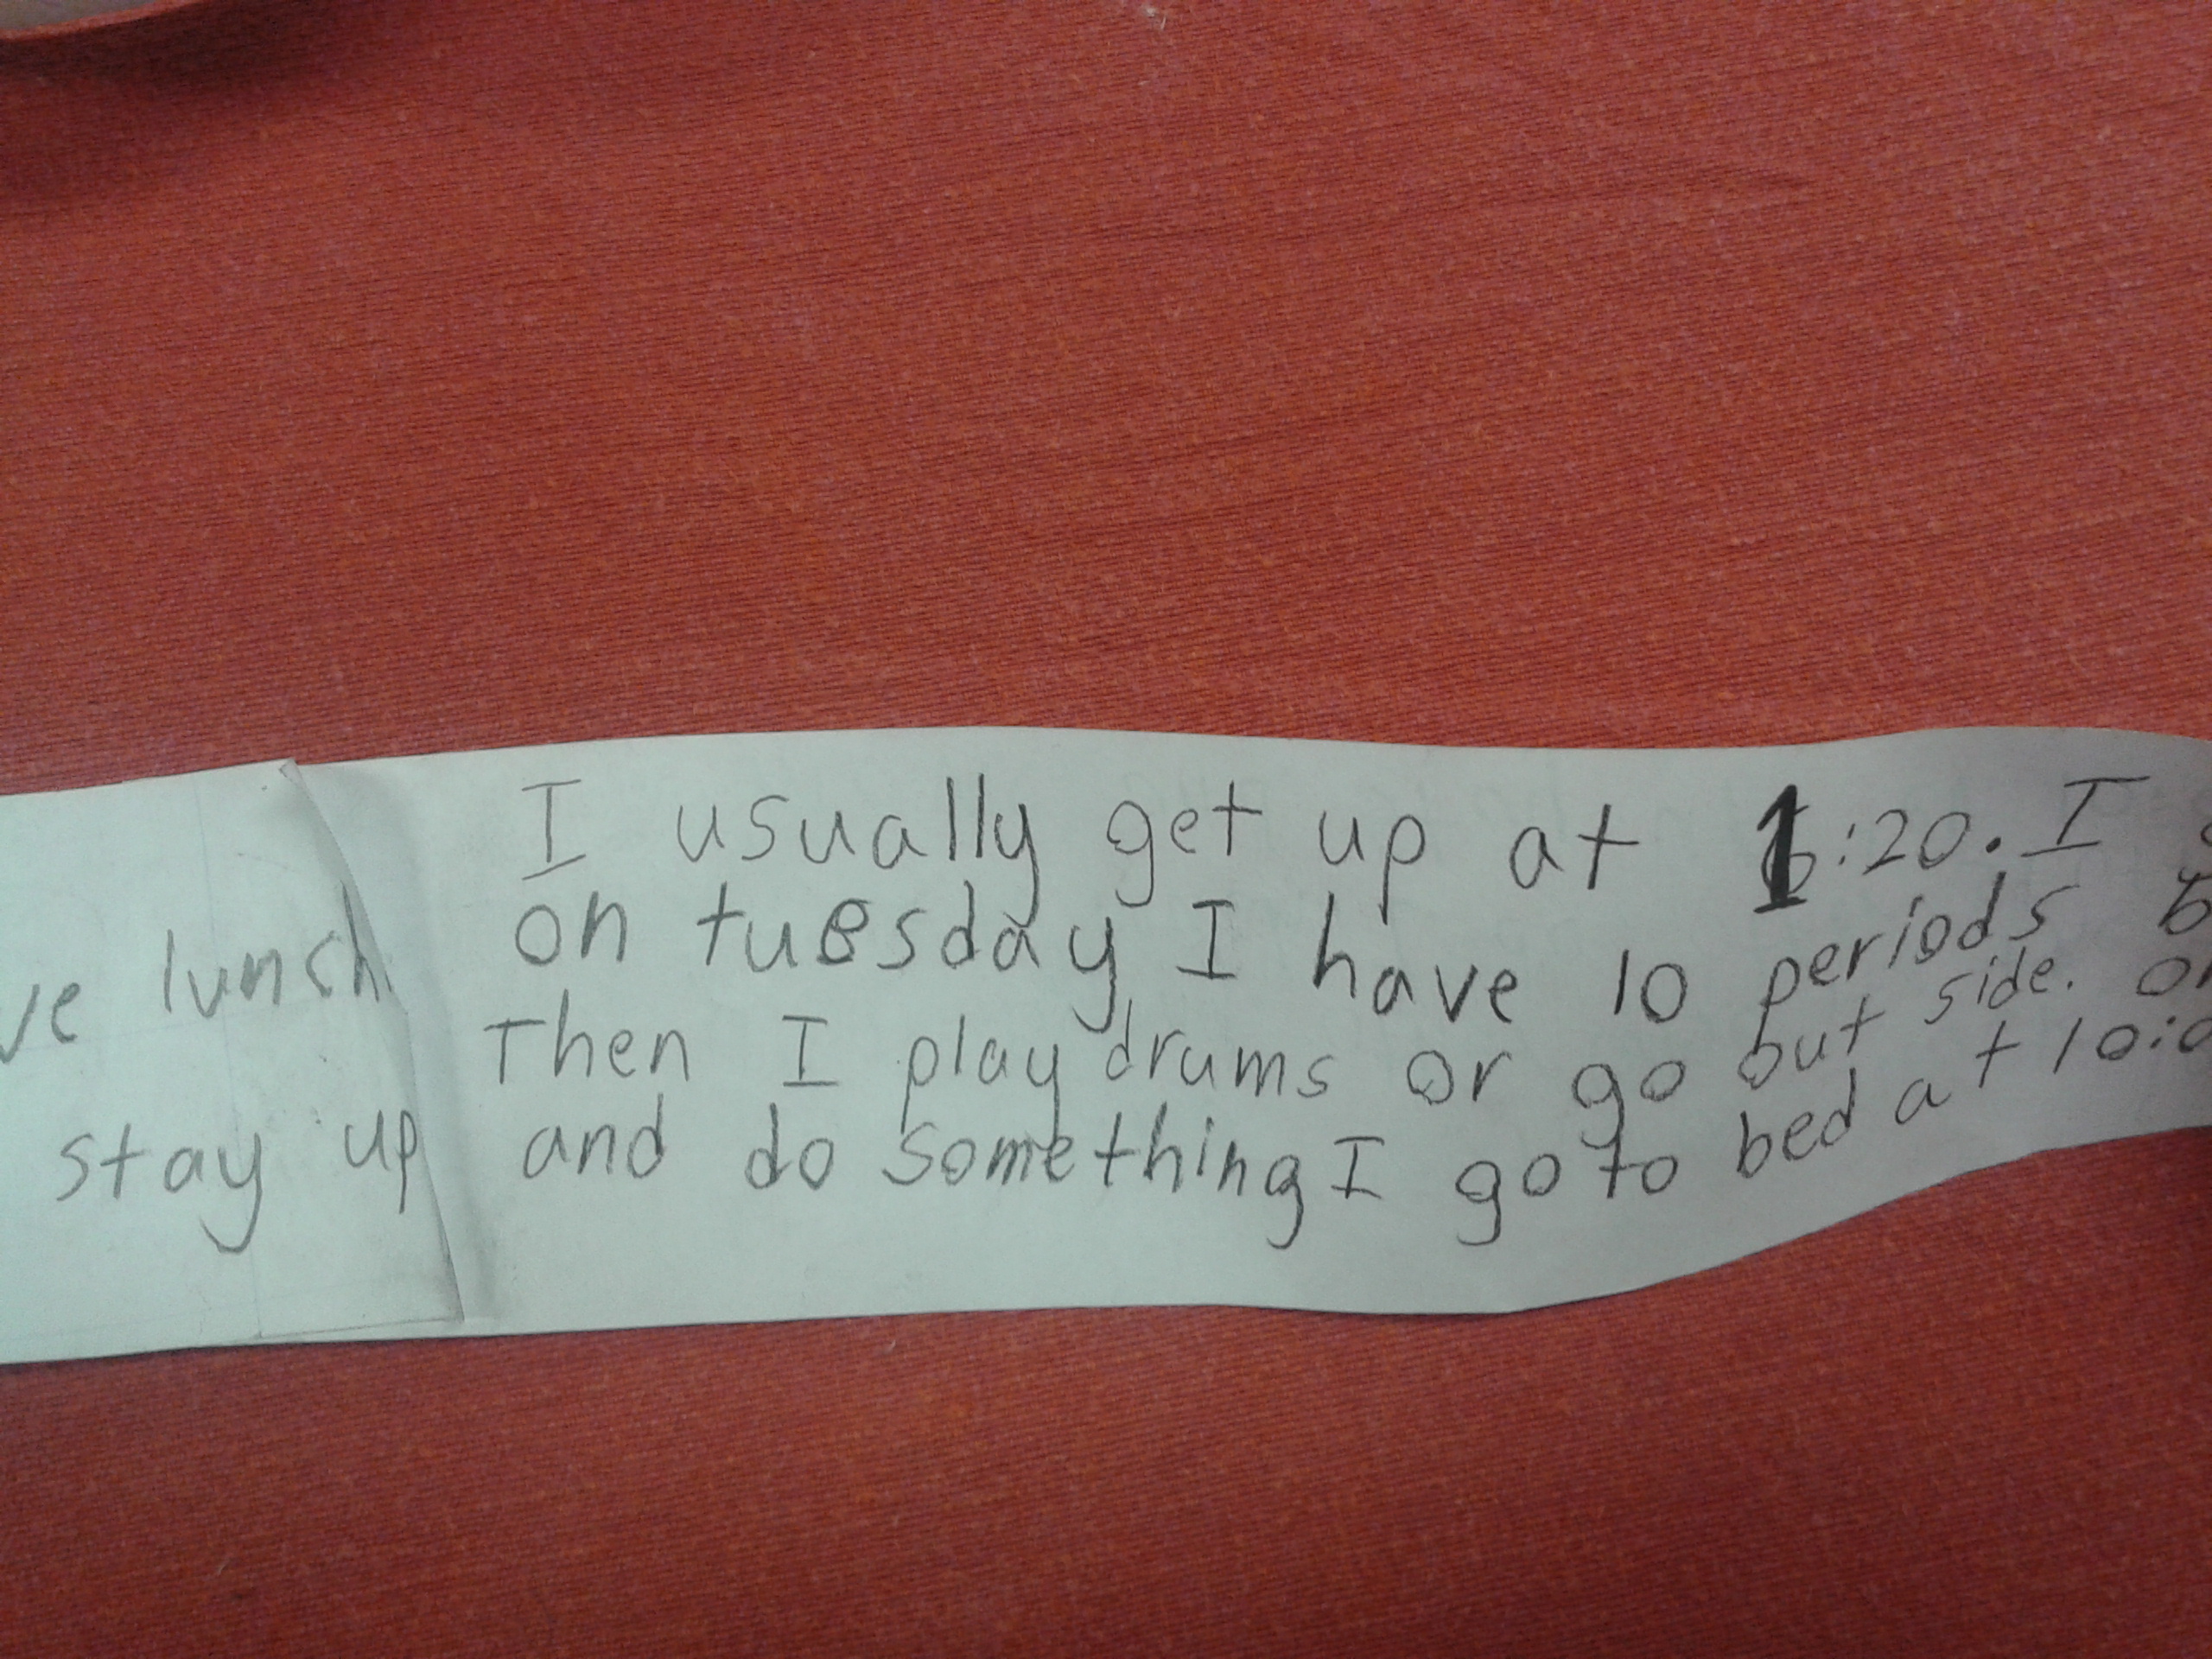 I usually get up at 1:20. I
lunch on tuesday I have 10 periods
Then I play drums or go out side.
stay up and do something I go to bed at